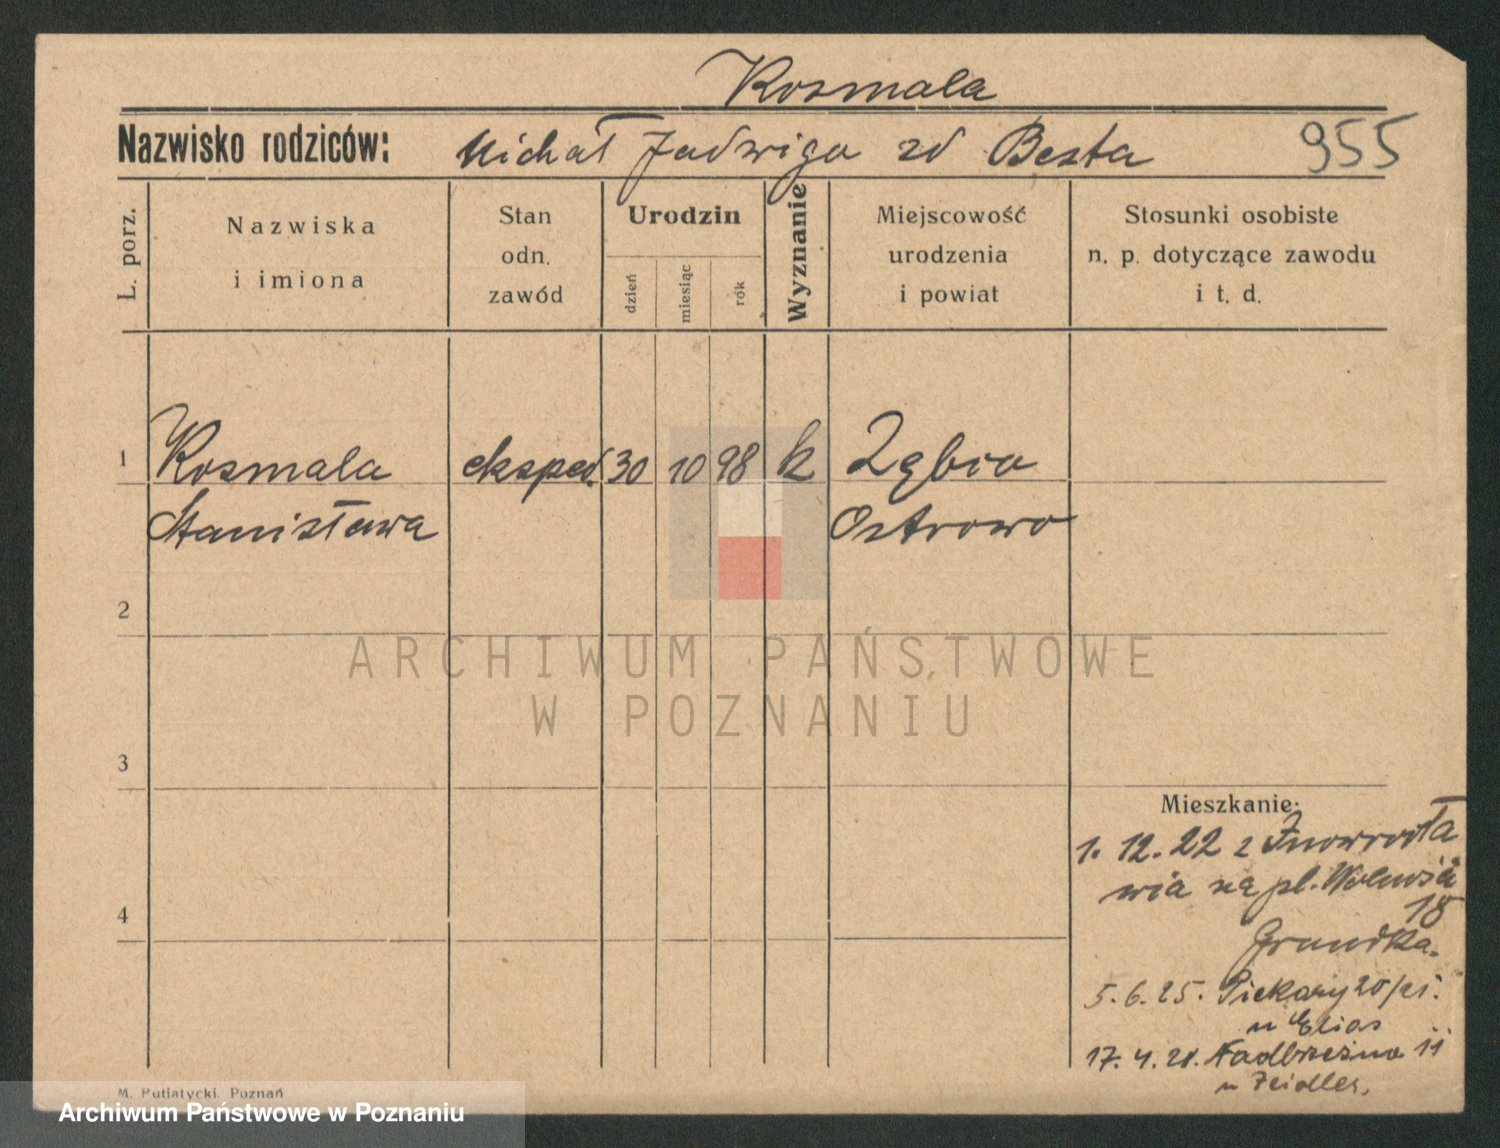 Kosmala
Nazwisko rodziców: Michał Jadwiga zd Besta 955
L. porz.
Nazwiska
i imiona
Stan
odn.
zawód
Urodzin
dzień
miesiąc
rok
Wyznanie
Miejscowość
urodzenia
i powiat
Stosunki osobiste
n. p. dotyczące zawodu
i t. d.
1 Kosmala eksped. 30 10 98 k Zębio
Stanisława Ostrowo
2
ARCHIWUM PAŃSTWOWE
W POZNANIU
3
Mieszkanie:
1. 12. 22 z Inowrocła
wia na pl. Wolnośći
18
4
Grundka.
5. 6. 25. Piekary 20/
u Elias
17. 4. 28. Nadbrzeżna 11
u Zeidler,
M. Putiatycki, Poznań
Archiwum Państwowe w Poznaniu